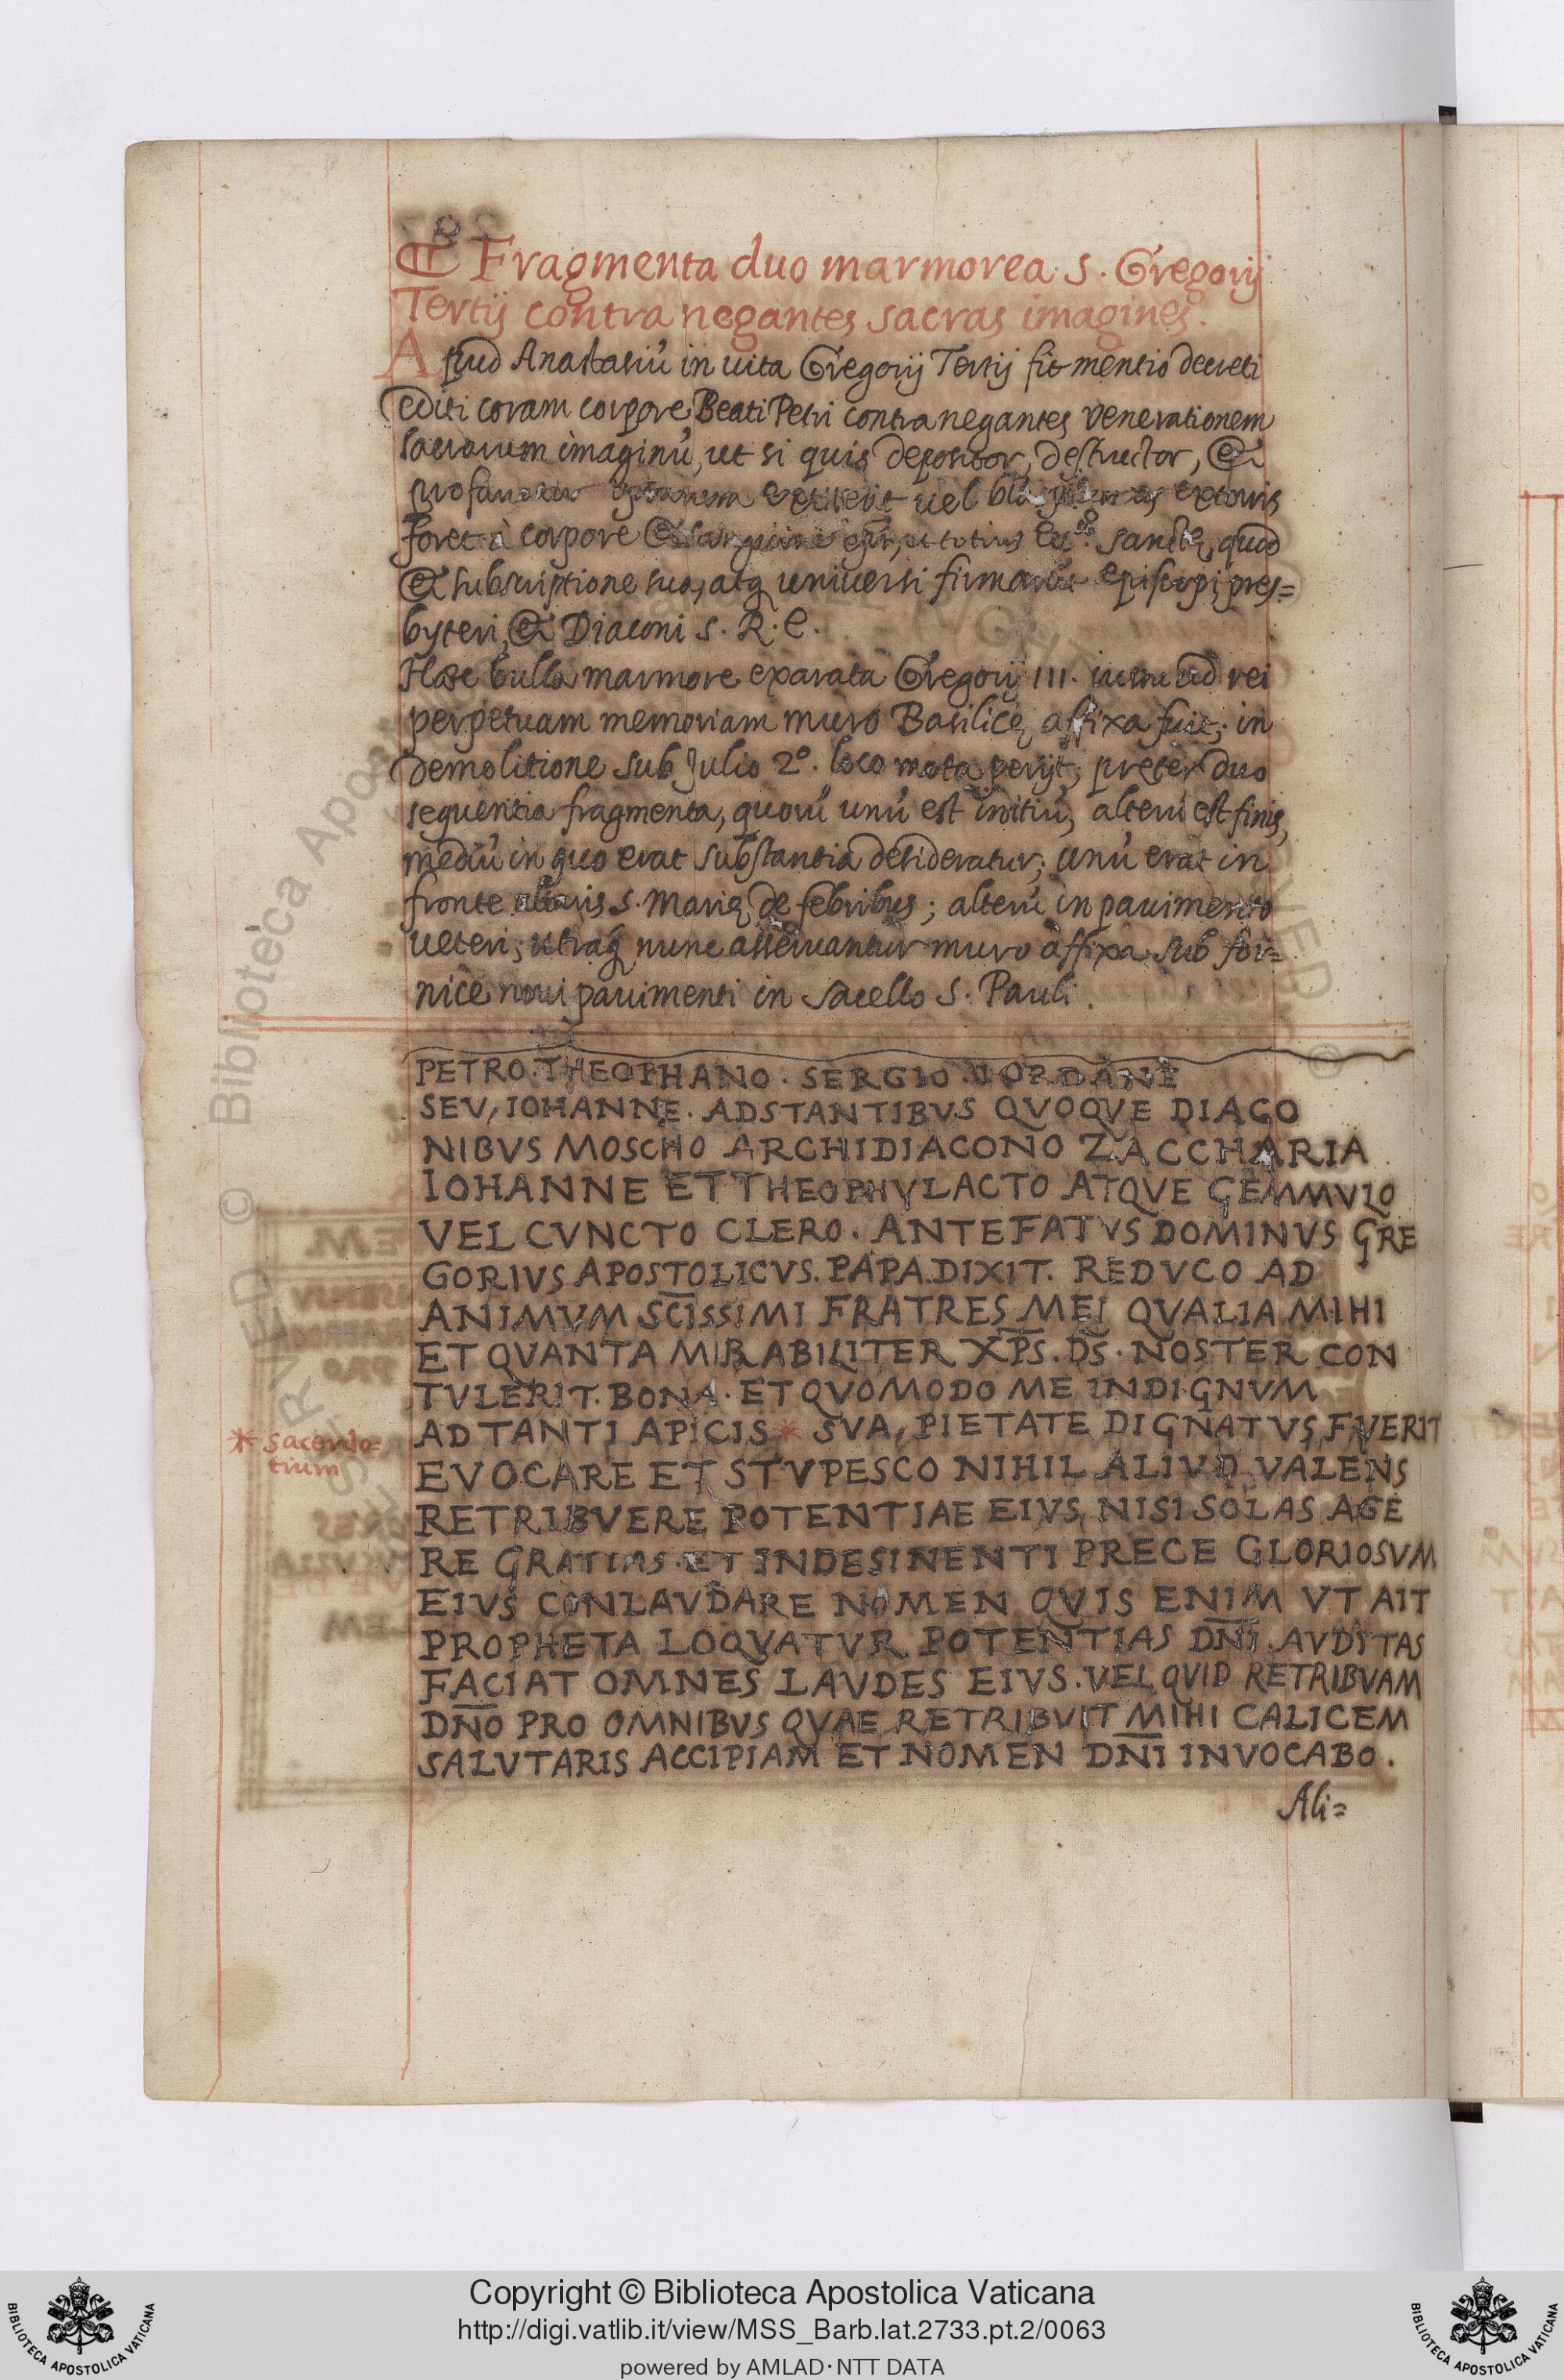 ¶ Fragmenta duo marmorea s. Gregorij
Tertij contra negantes sacras imagines.
Apud Anastasiũ in uita Gregorij Tertij fit mentio decreti
editi coram corpore Beati Petri contra negantes venerationem
sacrarum imaginũ, ut si quis depositor, destructor, &
extiterit uel extorris
foret à corpore & totius sanctę, quod
& subscriptione sua, atq universi firmarũt episcopi, pres=
byteri, & Diaconi S. R. E.
Haec bulla marmore exarata Gregorij III. iussu ad rei
perpetuam memoriam muro Basilicę affixa fuit; in
demolitione sub Julio 2º. loco mota perijt, preter duo
sequentia fragmenta, quorũ unũ est initiũ, alterũ est finis,
mediũ in quo erat substantia desideratur; unũ erat in
fronte altaris S. Marię de febribus; alterũ in pauimento
ueteri; utraq nunc asseruantur muro affixa sub for=
nice noui pauimenti in sacello S. Pauli.
PETRO. THEOPHANO. SERGIO. IORDANE
SEV, IOHANNE. ADSTANTIBVS QVOQVE DIACO
NIBVS MOSCHO ARCHIDIACONO ZACCHARIA
IOHANNE ET THEOPHYLACTO ATQVE GEMMVLO
VEL CVNCTO CLERO. ANTEFATVS DOMINVS GRE
GORIVS APOSTOLICVS. PAPA. DIXIT. REDVCO AD
ANIMVM SCISSIMI FRATRES MEI QVALIA MIHI
ET QVANTA MIRABILITER XPS. DS. NOSTER CON
TVLERIT. BONA. ET QVOMODO ME INDIGNVM
AD TANTI APICIS * SVA, PIETATE DIGNATVS, FVERIT
* sacerdo=
tium
EVOCARE ET STVPESCO NIHIL ALIVD VALENS
RETRIBVERE POTENTIAE EIVS, NISI SOLAS AGE
RE GRATIAS. ET INDESINENTI PRECE GLORIOSVM
EIVS CONLAVDARE NOMEN QVIS ENIM VT AIT
PROPHETA LOQVATVR POTENTIAS DNI. AVDITAS
FACIAT OMNES LAVDES EIVS. VEL QVID RETRIBVAM
DNO PRO OMNIBVS QVAE RETRIBVIT MIHI CALICEM
SALVTARIS ACCIPIAM ET NOMEN DNI INVOCABO.
Ali=
Copyright © Biblioteca Apostolica Vaticana
http://digi.vatlib.it/view/MSS_Barb.lat.2733.pt.2/0063
powered by AMLAD·NTT DATA
BIBLIOTECA APOSTOLICA VATICANA
BIBLIOTECA APOSTOLICA VATICANA